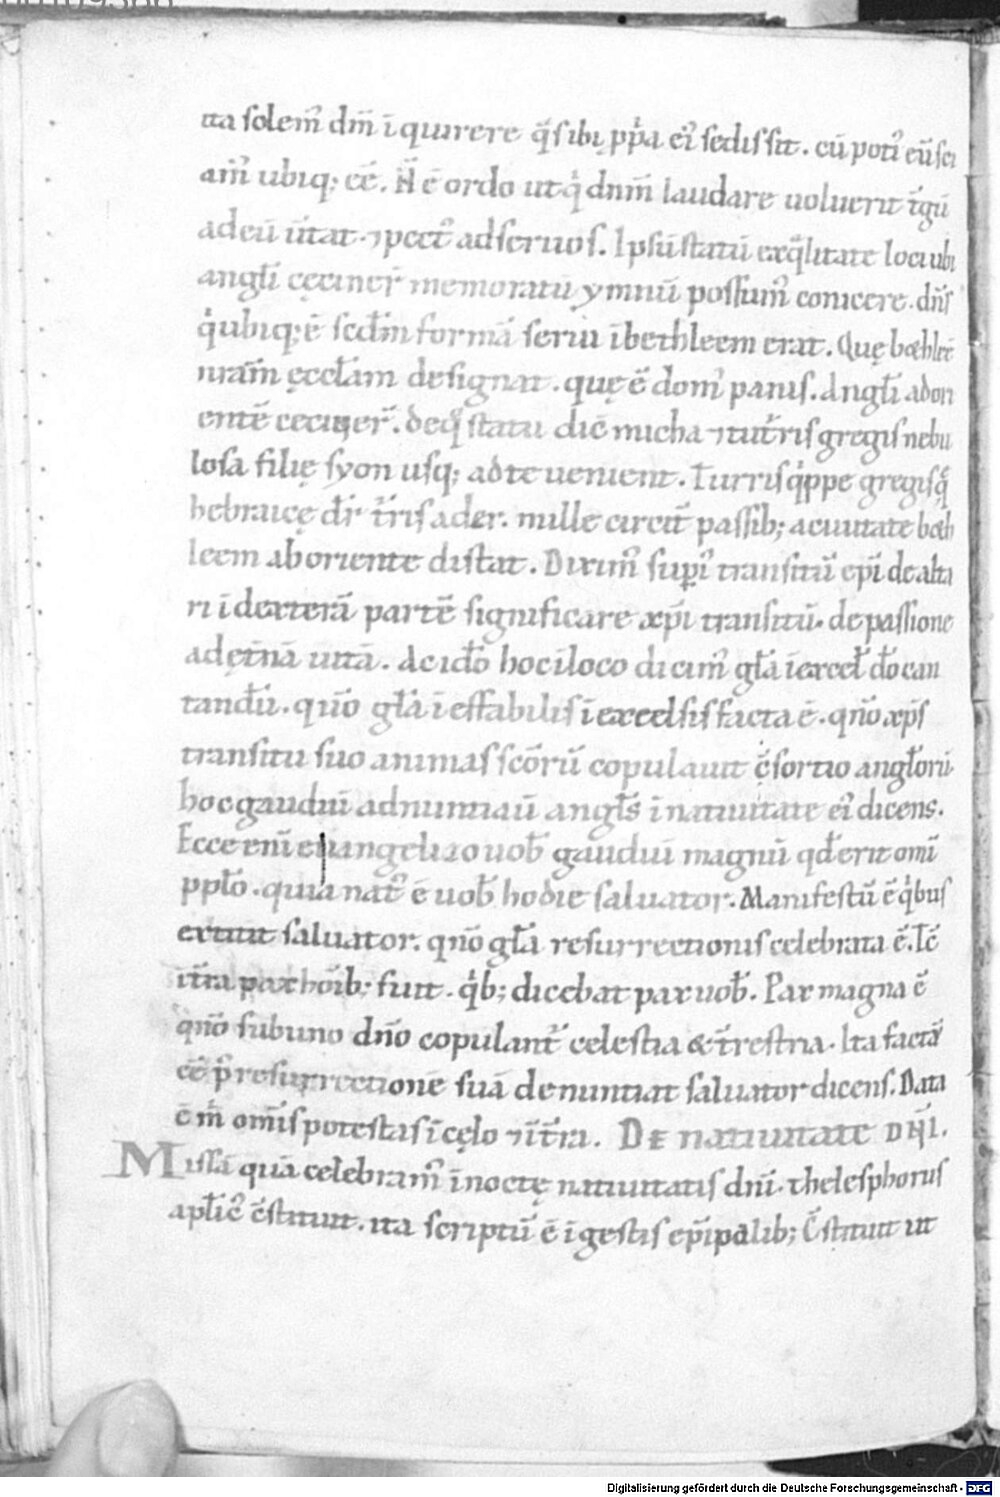 ita solem᷒ dm̄ ī quirere q̄ sibi ppͥa ei᷒ sedis sit. cū poti᷒ eū sci
am᷒ ubiq; eē. N̄ ē ordo ut qͥ dnm̄ laudare uoluerit t̄gū
ad eū ūtat. ⁊ pect᷒ ad seruos. Ipsū statū ex q̄litate loci ubi
angłi cęciner̄ memoratū ymnū possum᷒ conicere. dn̄s
qͥ ubiq; ē scd̄m formā serui ī bethleem erat. Quę bethleē
nr̄am ęccłam designat. quę ē dom᷒ panis. Angłi ab ori
ente ceciner̄. de q̄ statu dic̄ micha ⁊ tu t̄ris gregis nebu
losa filię syon usq; ad te uenient. Turris qͥppe gregis q̄
hebraicę dr̄ t̄ris ader. mille circit̄ passib; a ciuitate beth
leem ab oriente distat. Dixim᷒ supi᷒ transitū epī de alta
ri ī dexterā partē significare xpī transitū. de passione
ad ęt̄nā uitā. Ac idō hoc ī loco dicim᷒ gła ī exceł dō can
tandū. quō gła ī effabilis ī excelsis facta ē. qn̄o xps̄
transitu suo animas scōrū copulauit c̄sortio angłorū
hoc gaudiū adnuntiaū angłs ī natiuitate ei᷒ dicens.
Ecce enī euangelizo uob̄ gaudiū magnū qd̄ erit omī
ppło. quia nat᷒ ē uob̄ hodie saluator. Manifestū ē qͥbus
extitit saluator. qn̄o gła resurrectionis celebrata ē. Iē
ī t̄ra pax hōib; fuit. qͥb; dicebat pax uob̄. Pax magna ē
qn̄o sub uno dn̄o copulant᷒ celestia & t̄restria. Ita factā
eē p᷒ resurrectionē suā denuntiat saluator dicens. Data
ē m̄ om̄is potestas ī cęlo ⁊ ī t̄ra. DE natiuitate DN̄I.
Missā quā celebram᷒ ī nocte natiuitatis dnī. thelesphorus
apłic᷒ c̄stituit. ita scriptū ē ī gestis ep̄ipalib; C̄stituit ut
Digitalisierung gefördert durch die Deutsche Forschungsgemeinschaft - DFG